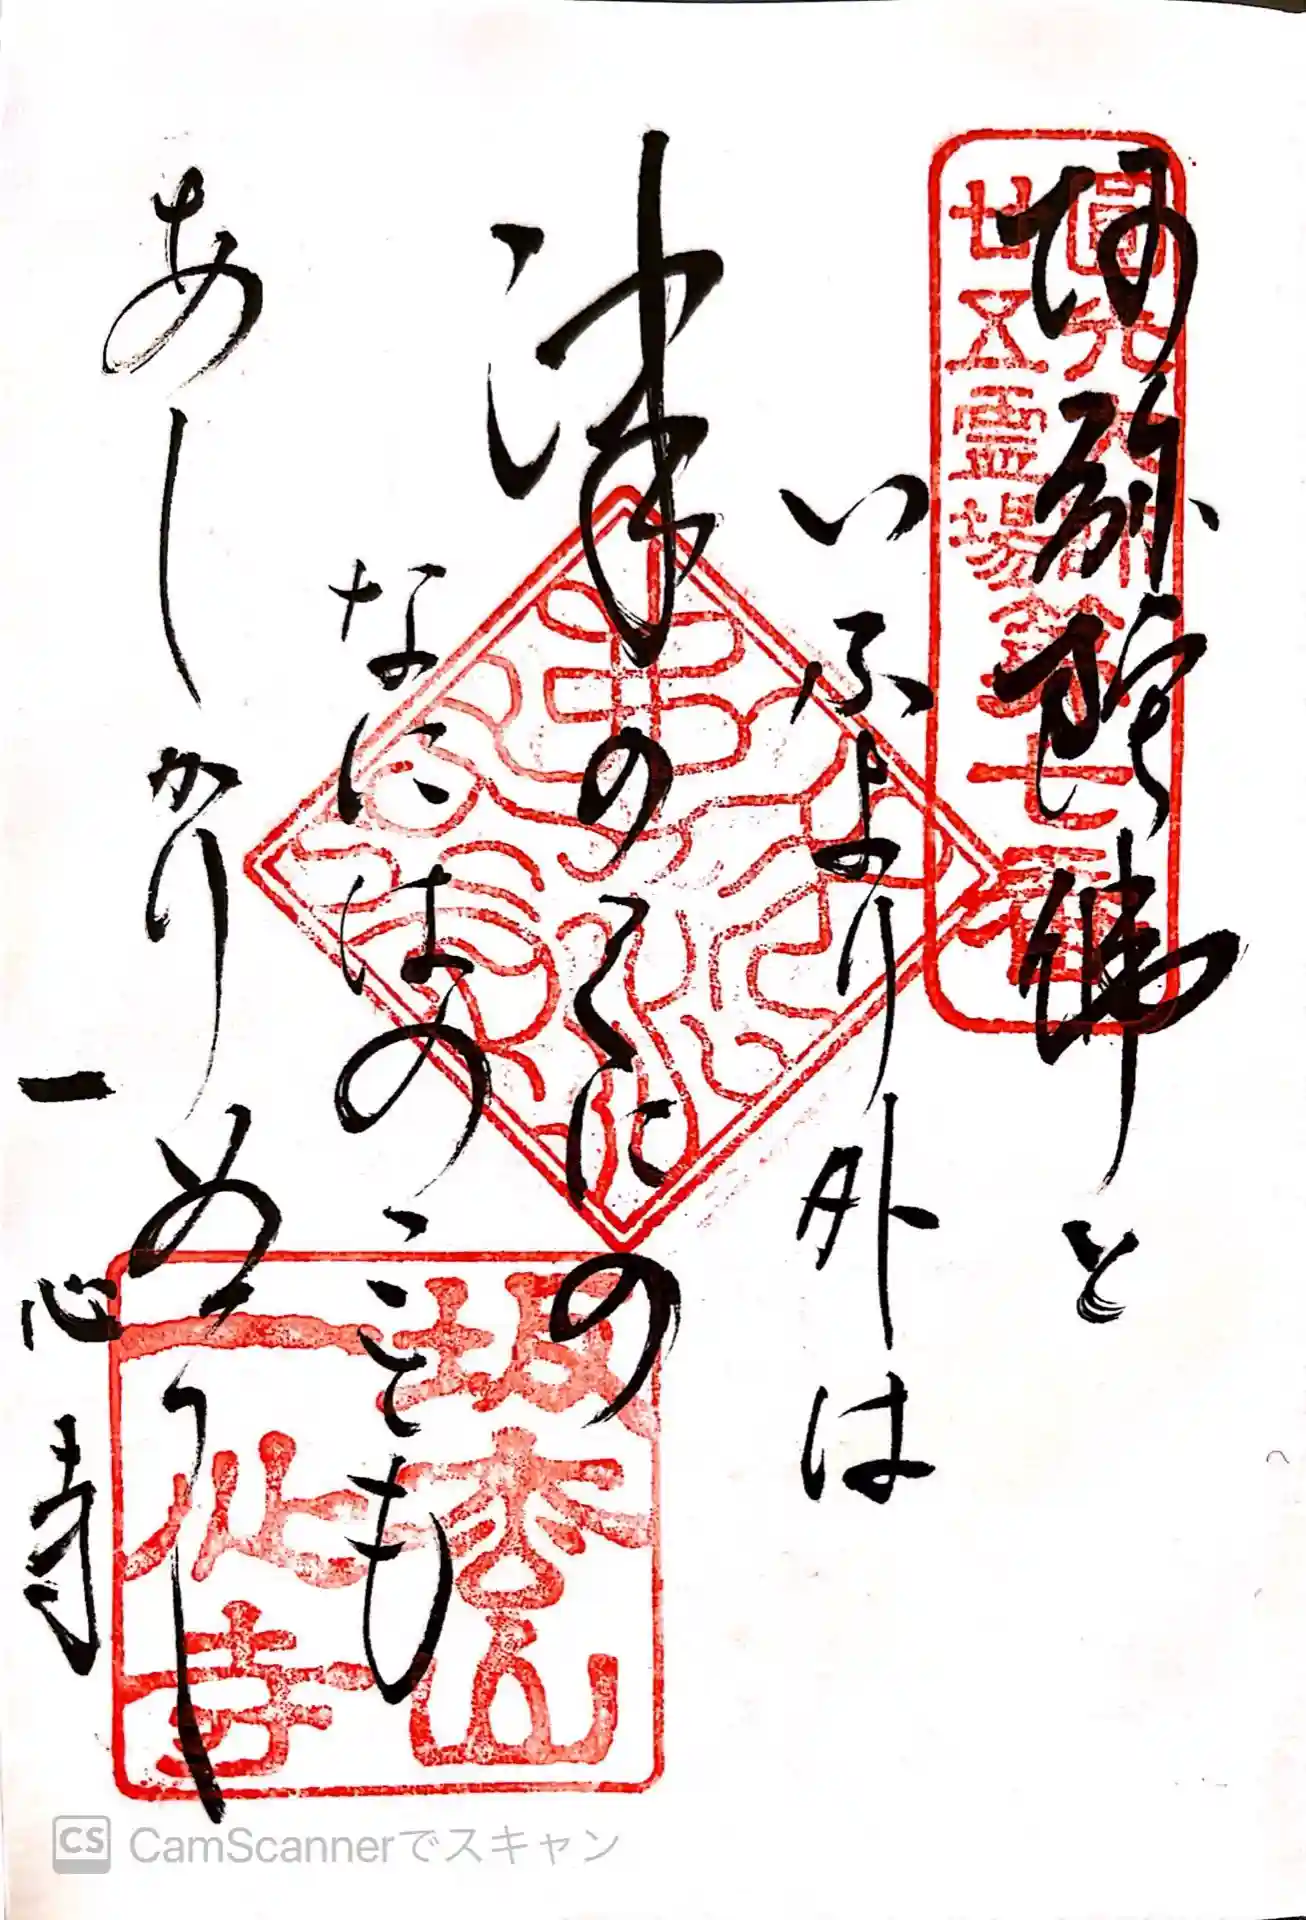 阿弥陀佛と
いふより外は
津のくにの
なにはのことも
あしかりぬべし
一心寺
圓光大師
廿五霊場第七番
坂松山
一心寺
CS CamScannerでスキャン